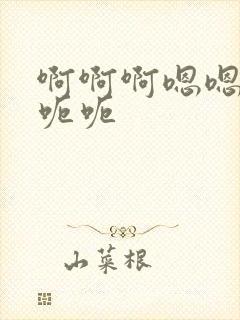 啊啊啊嗯嗯
呃呃
山菜根